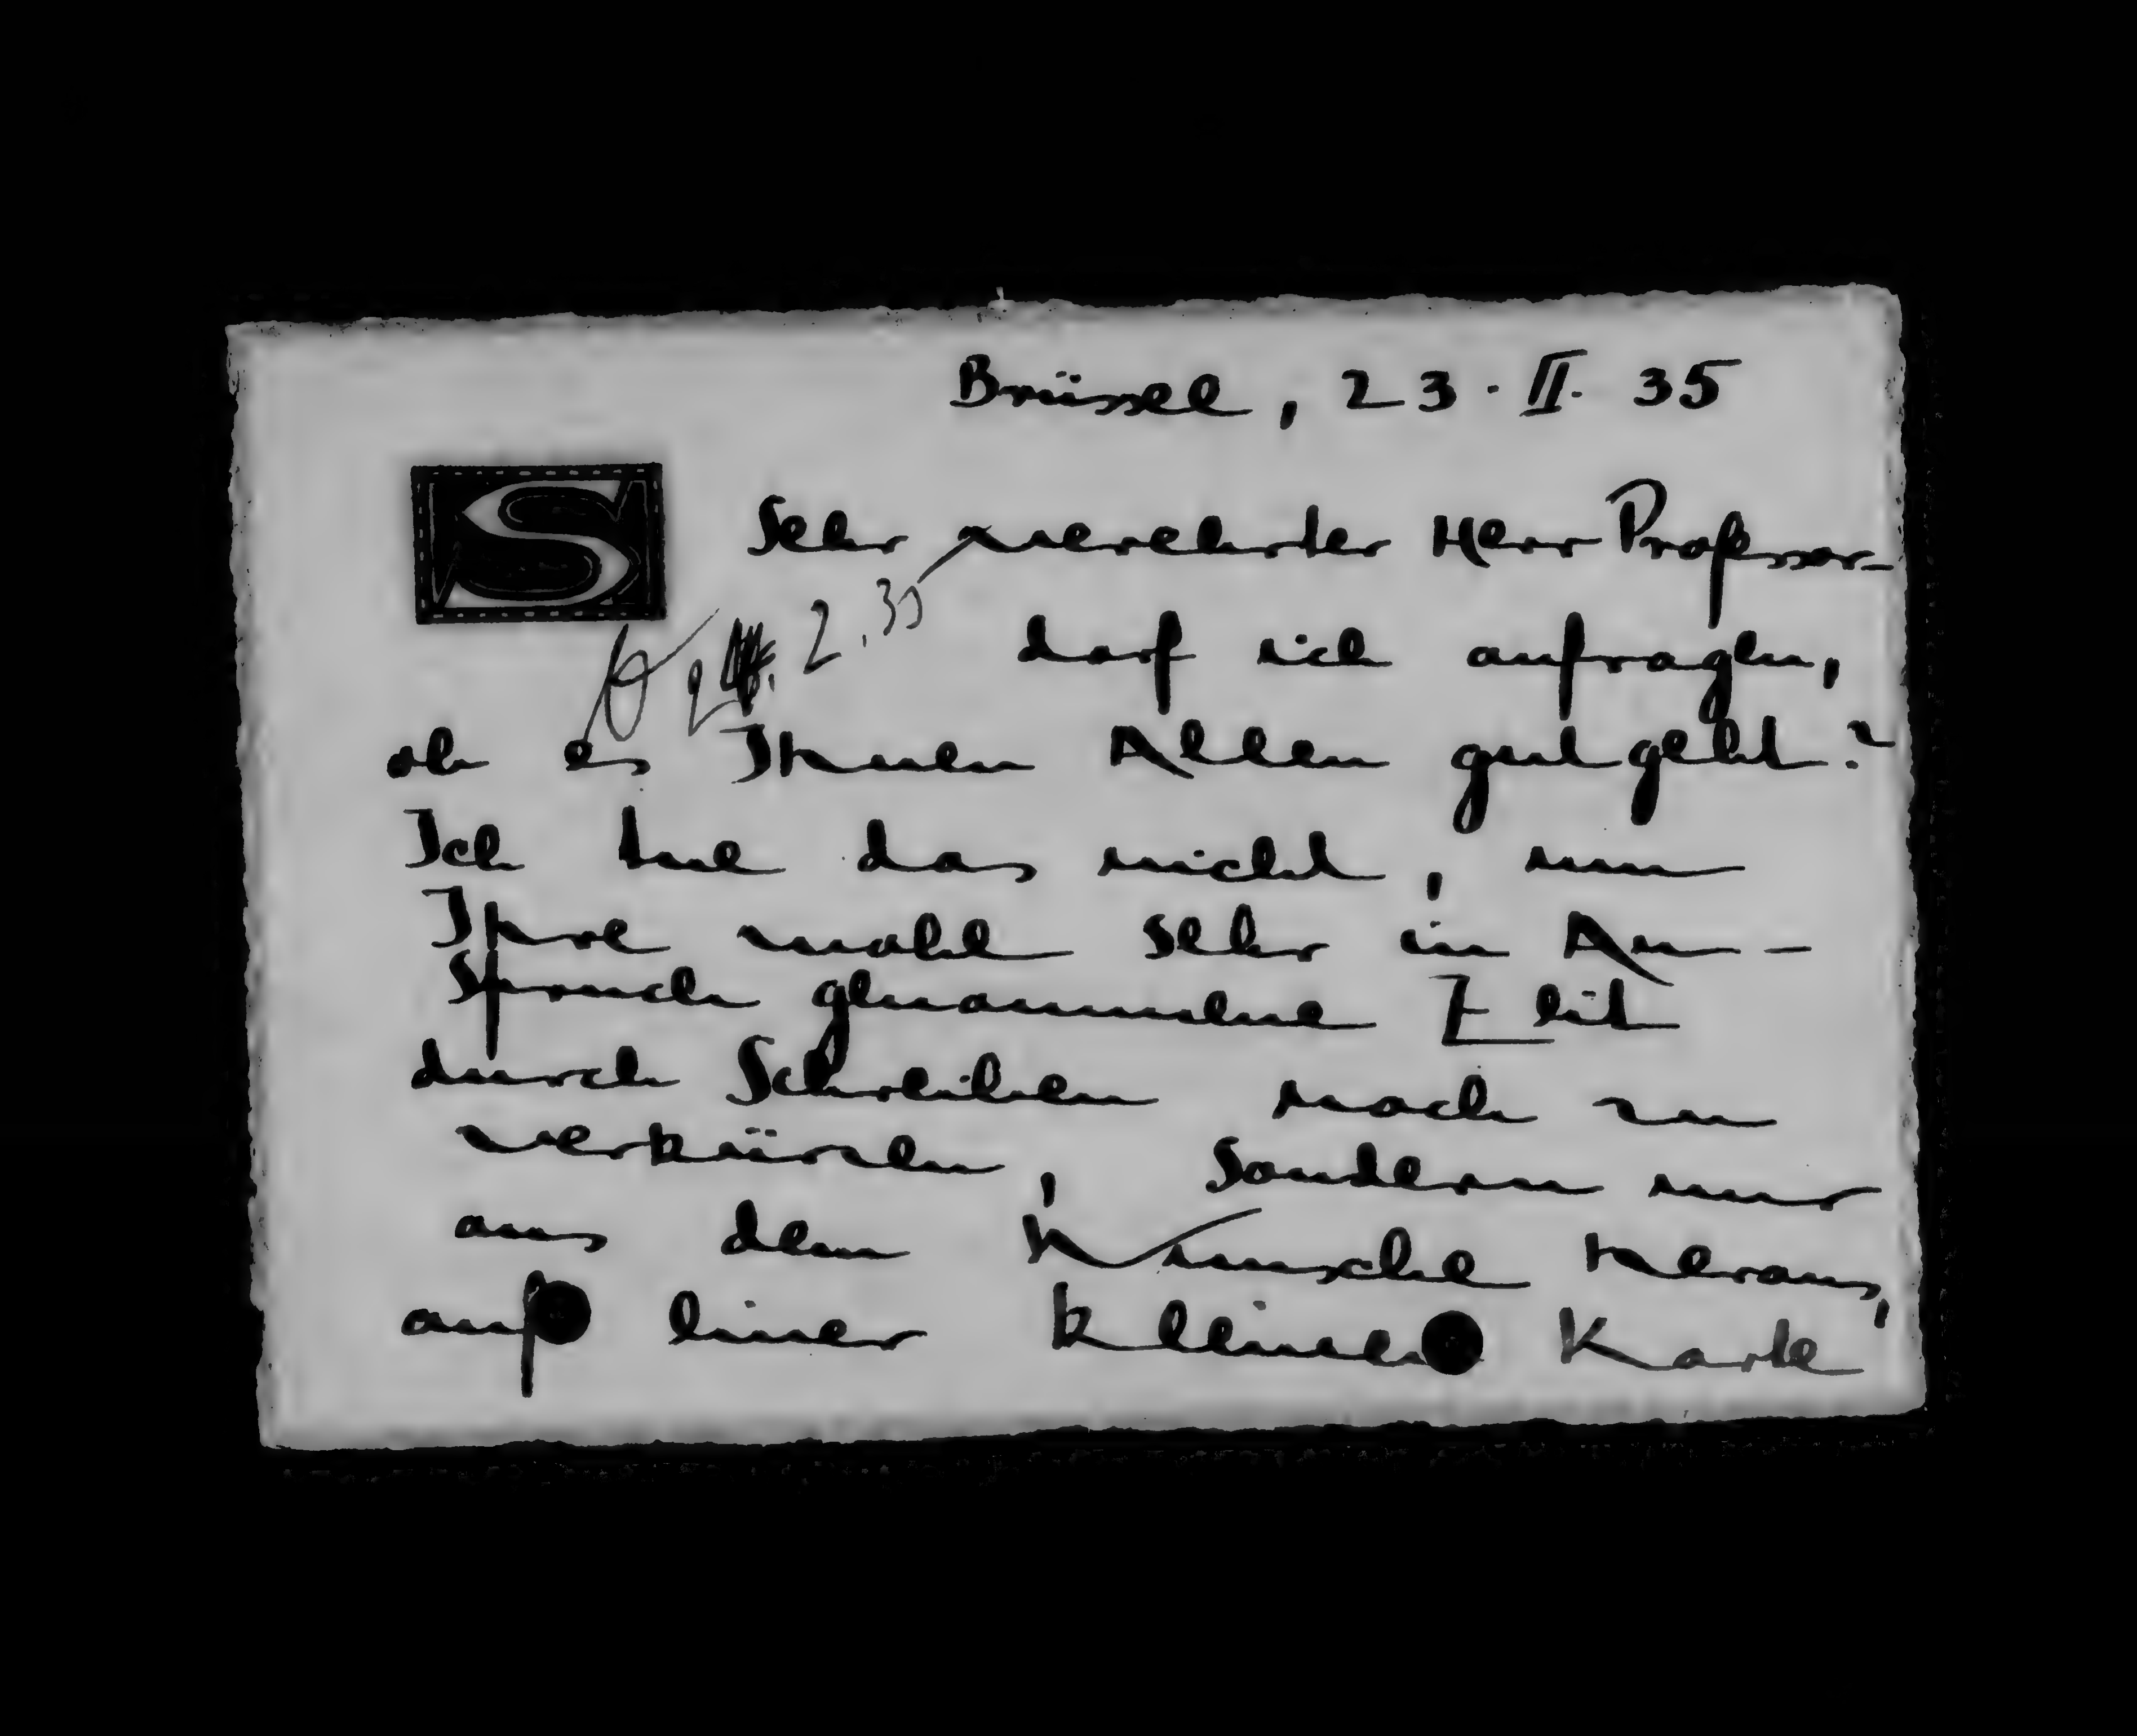 Brüssel, 23. II. 35
S
Sehr verehrter Herr Professor
2.35
darf ich anfragen,
ob es Ihnen Allen gut geht?
Ich tue das nicht, um
Ihre wohl sehr in An-
spruch genommene Zeit
durch Schreiben noch zu
verkürzen, sondern nur
aus dem Wunsche heraus,
auf einer kleinen Karte